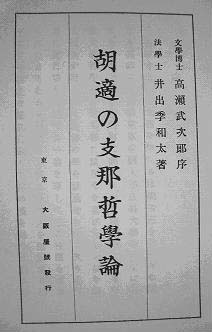 文學博士 高瀬武次郎序
法學士 井出季和太著
胡適の支那哲學論
東京 大阪屋號發行